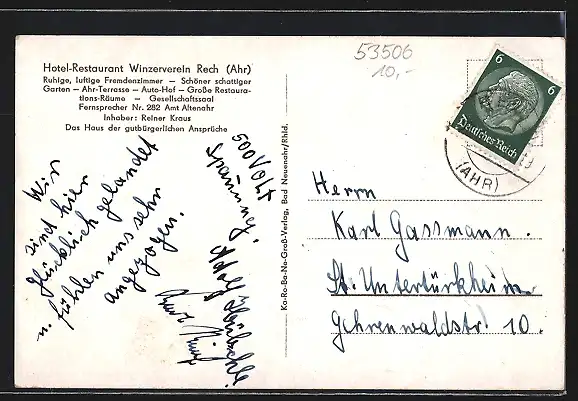 Hotel-Restaurant Winzerverein Rech (Ahr)
Ruhige, luftige Fremdenzimmer — Schöner schattiger
Garten — Ahr-Terrasse — Auto-Hof — Große Restaura-
tions-Räume — Gesellschaftssaal
Fernsprecher Nr. 282 Amt Altenahr
Inhaber: Reiner Kraus
Das Haus der gutbürgerlichen Ansprüche
Wir
sind hier
glücklich gelandet
u. fühlen uns sehr
angezogen.
500 Volt
Spannung.
Adolf
Ka-Ro-Ba-Ne-Groß-Verlag, Bad Neuenahr/Rhld.
53506
10,-
6
6
Deutsches Reich
(AHR)
Herrn
Karl Gassmann.
St. Untertürkheim
Gehrenwaldstr. 10.